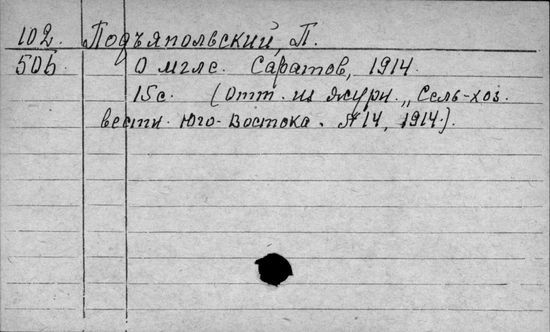 102. Подъяпольский, П.
506. О мгле. Саратов, 1914.
15с. (Отт. из журн. „Сель-хоз.
вестн. Юго-Востока. №14, 1914.).